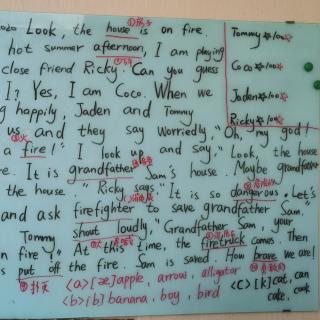 Look, the house is on fire.
hot summer afternoon, I am playing
close friend Ricky. Can you guess
I? Yes, I am Coco. When we
g happily, Jaden and Tommy
us, and they say worriedly, "Oh, my god!
a fire!" I look up and say, "Look, the house
re. It is grandfather Sam's house. Maybe grandfather
the house." Ricky says "It is so dangerous. Let's
and ask firefighter to save grandfather Sam.
Tommy shout loudly. "Grandfather Sam, your
n fire!" At this time, the firetruck comes. Then
s put off the fire. Sam is saved. How brave we are!
<a>[æ]apple, arrow, alligator
<b>[b] banana, boy, bird
<c>[k] cat, can
cake, cook
Tommy ☆100☆
Coco ☆100☆
Jaden ☆100☆
Ricky ☆100☆